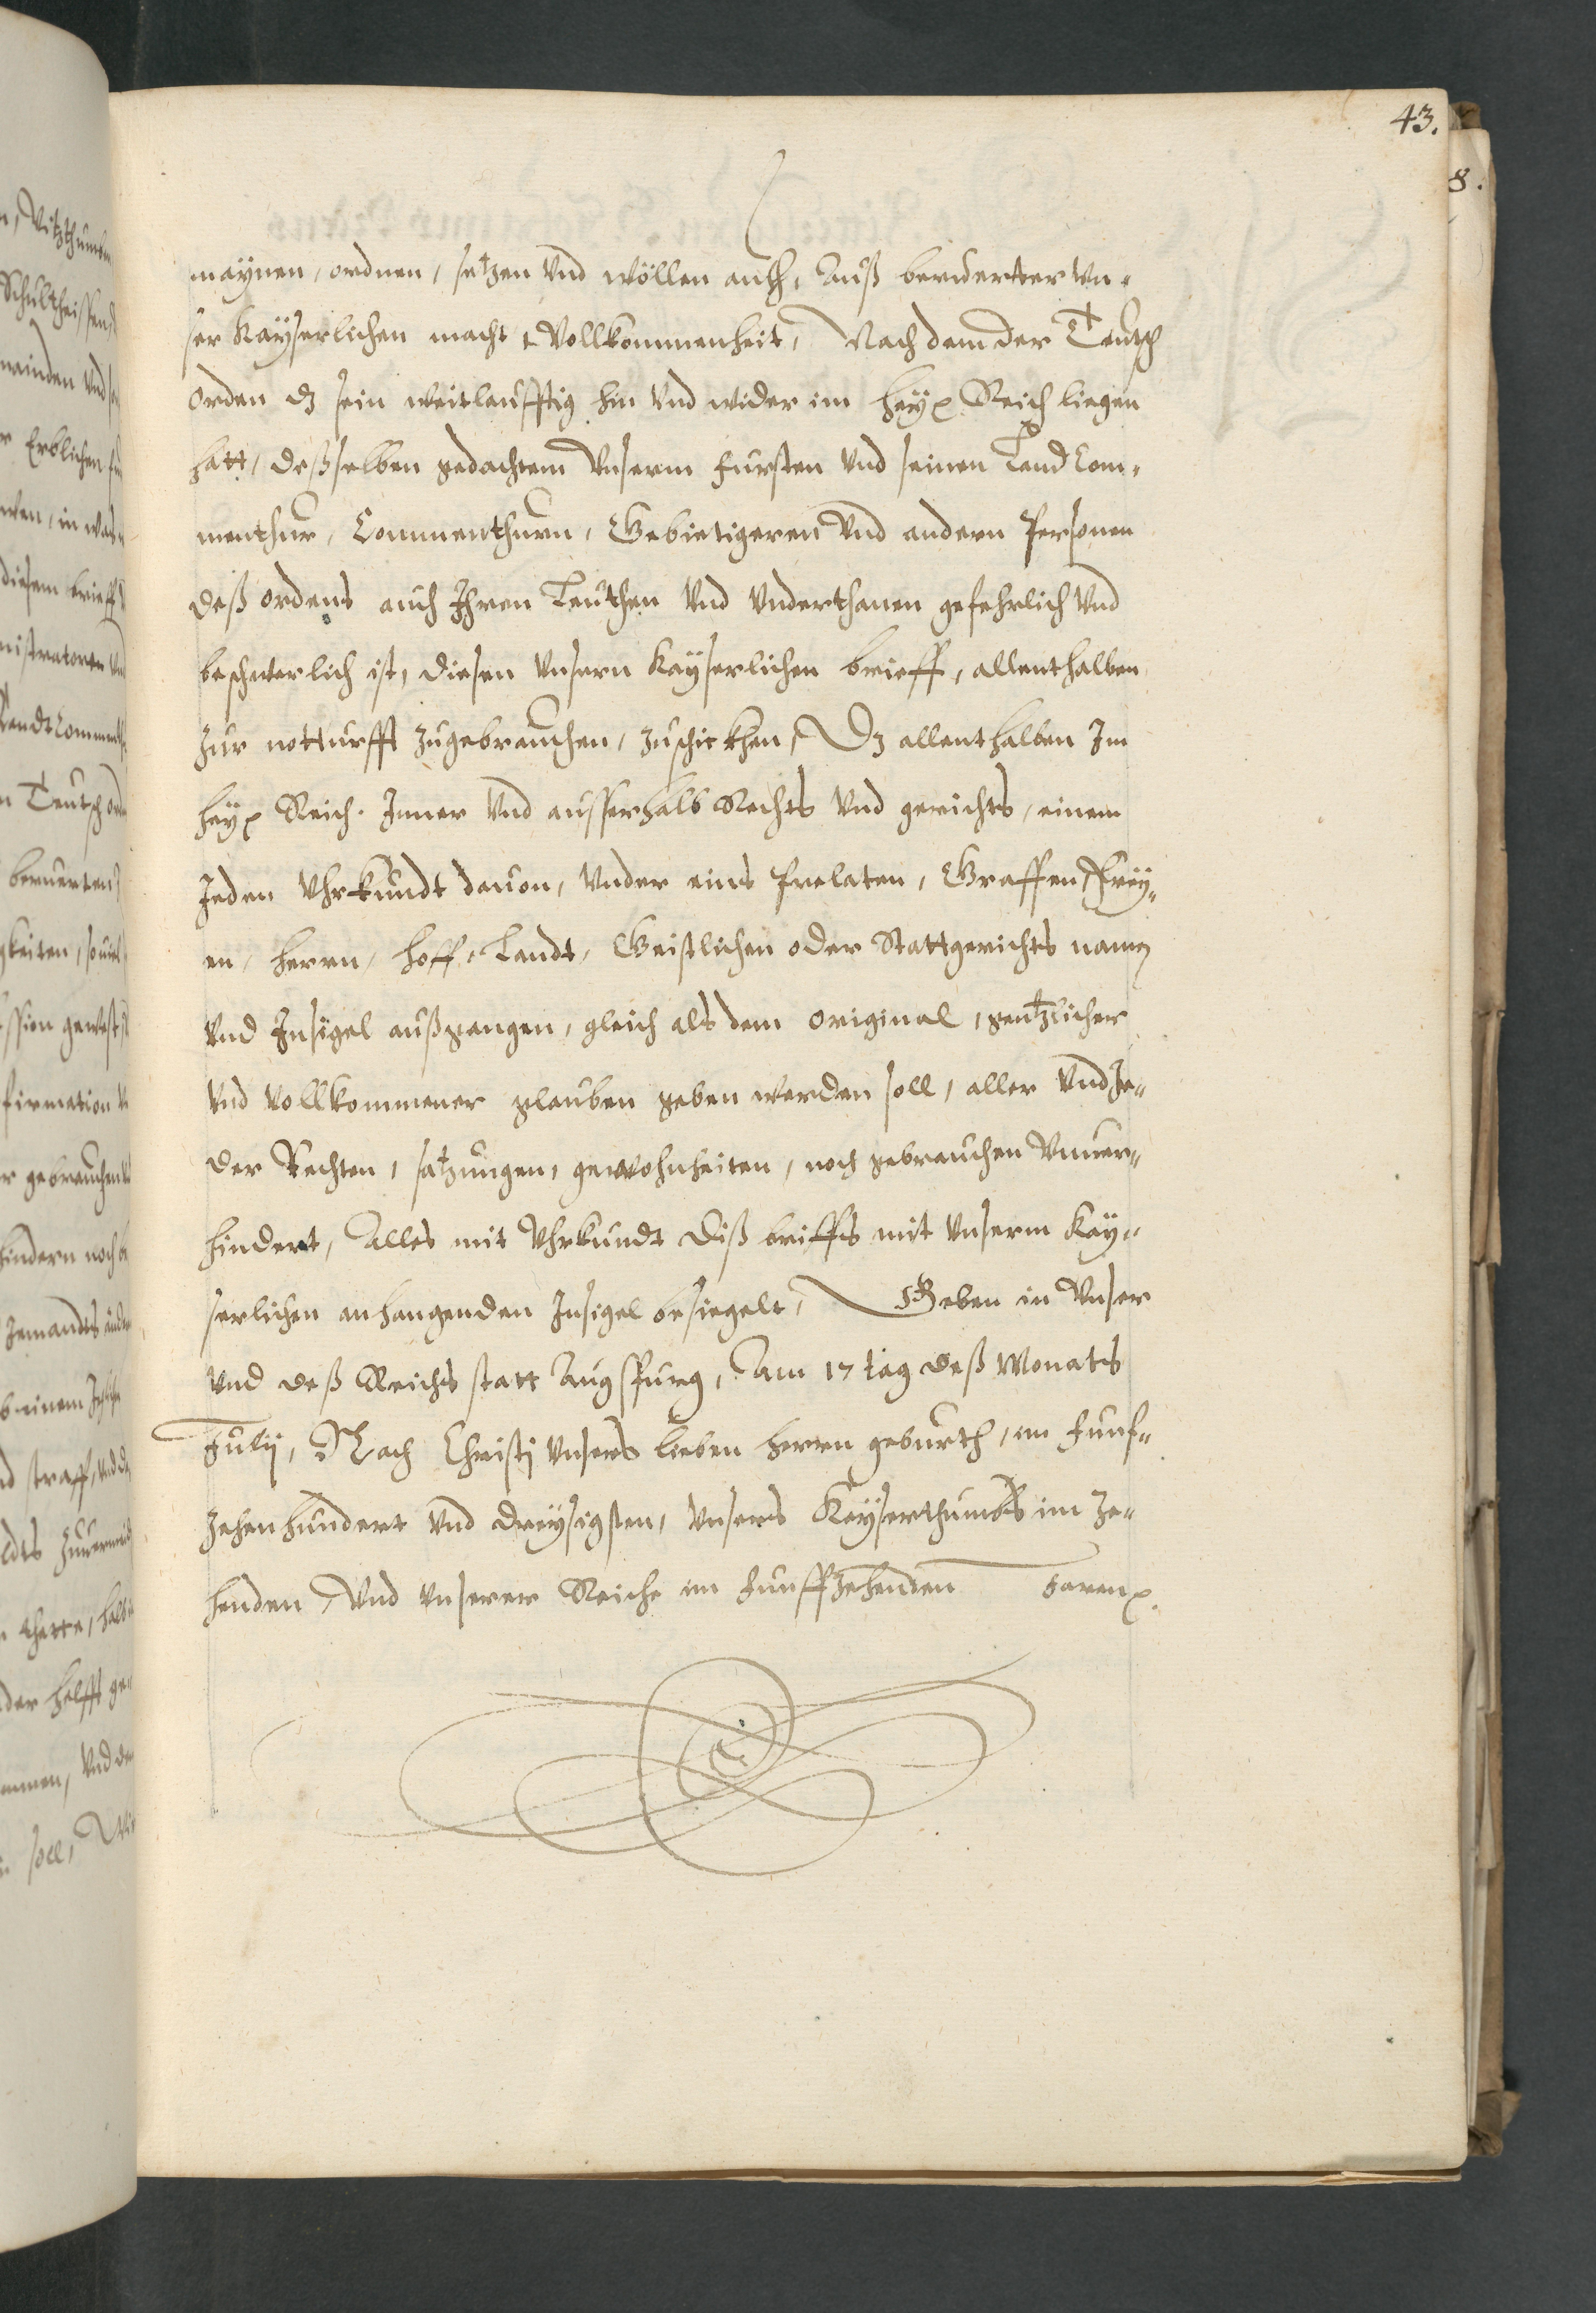 43.
8.
maÿnen, ordnen, setzen Vnd wöllen auch, Auß berurter Vn-
ser Kaÿserlichen macht Vollkommenheit, Nach dem der Teutsch
orden dz sein weitleufftig hin Vnd wider im Heÿ: Reich liegen
hatt, desselben gedachtem Vnserm fursten Vnd seinen Land Com-
menthur, Commenthurn, Gebietigeren Vnd andern Personen
deß ordens auch Ihren Leuthen Vnd Vnderthanen gefehrlich Vnd
beschwerlich ist, diesen Vnsern Kaÿserlichen brieff, allenthalben
zur notturfft zugebrauchen, zuschickhen, Dz allenthalben Im
Heÿ: Reich. Inner Vnd ausserhalb Rechts Vnd gerichts, einem
Jeden Vhrkundt dauon, Vnder eins Prelaten, Graffen, Freÿ-
en, herrn, hoff, Landt, Geistlichen oder Stattgerichts namen
Vnd Insigel außgangen, gleich als dem original, gentzlicher
Vnd Vollkommener glauben geben werden soll, aller Vnd Je-
der Rechten, satzungen, gewohnheiten, noch gebrauchen Vnuer-
hindert, Alles mit Vhrkundt diß brieffs mit Vnserm Kaÿ-
serlichen anhangenden Insigel besiegelt, Geben in Vnser
Vnd deß Reichs statt Augspurg, Am 17 tag deß Monats
Julij, Nach Christj Vnsers lieben herrn geburth, im funf-
zehenhundert Vnd dreÿsigsten, Vnsers Keÿserthumbs im Ze-
henden, Vnd Vnserer Reiche im funffzehenden Jaren.